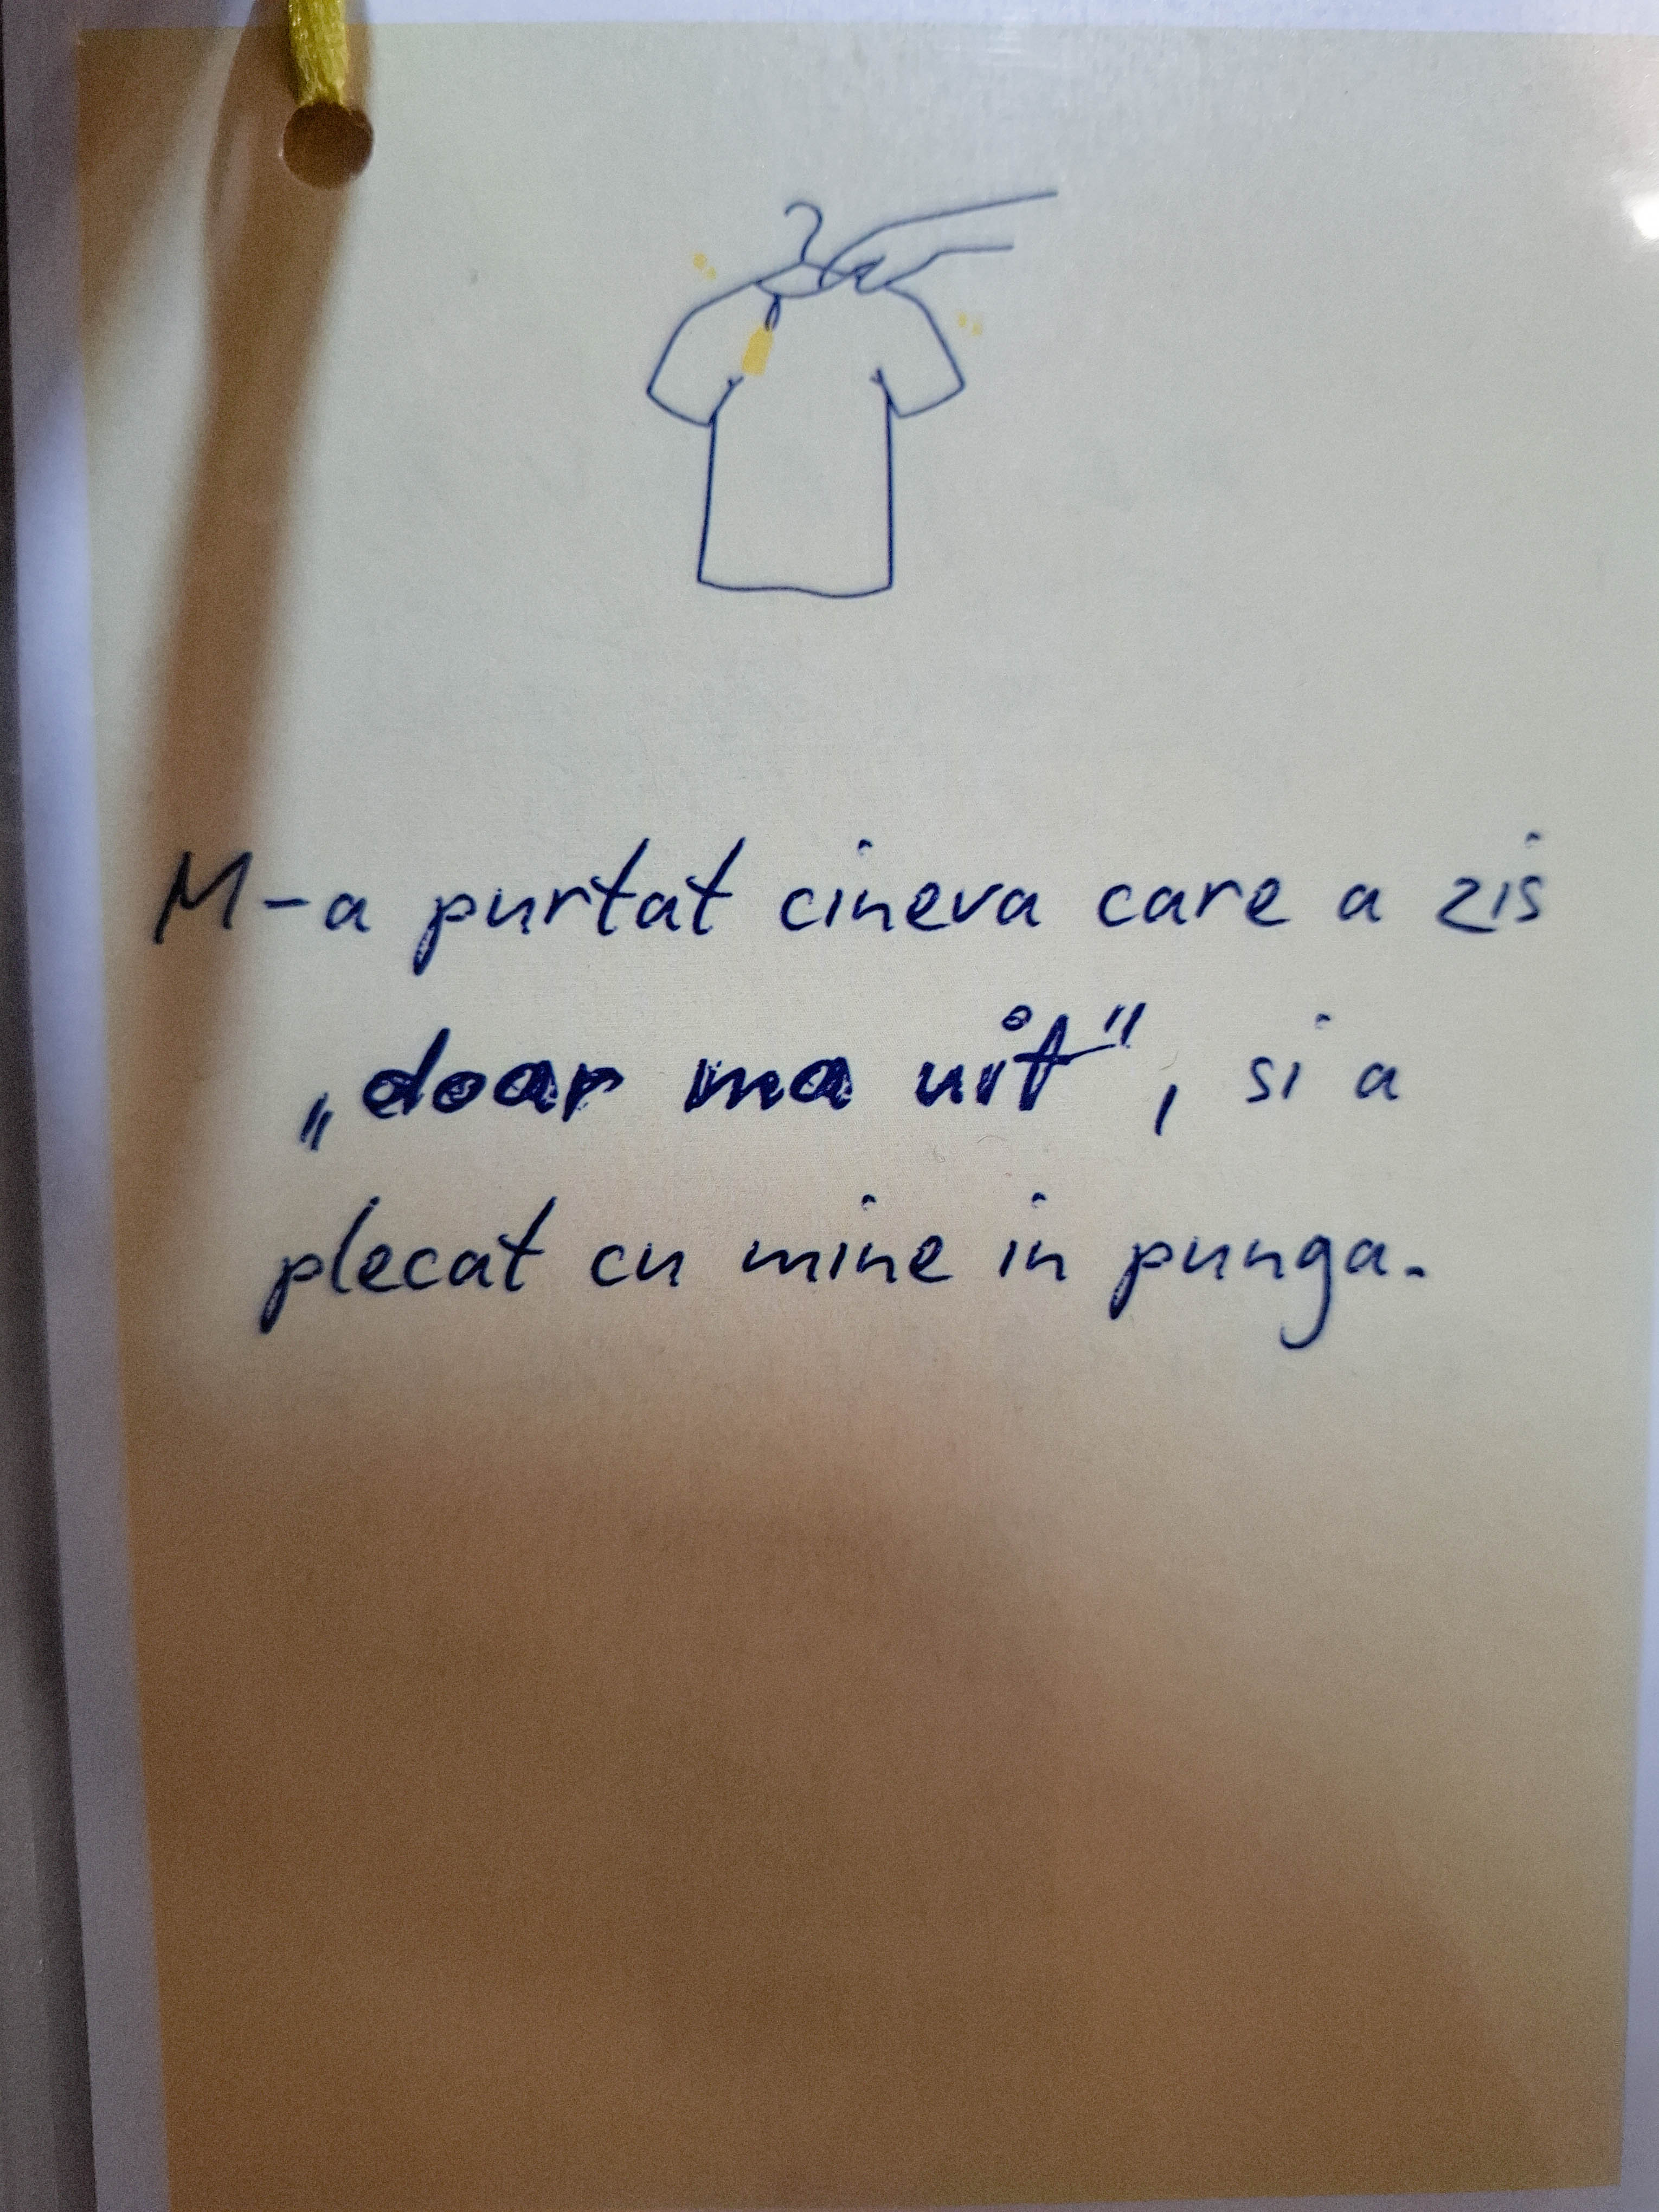 M-a purtat cineva care a zis
„doar ma uit”, si a
plecat cu mine in punga.